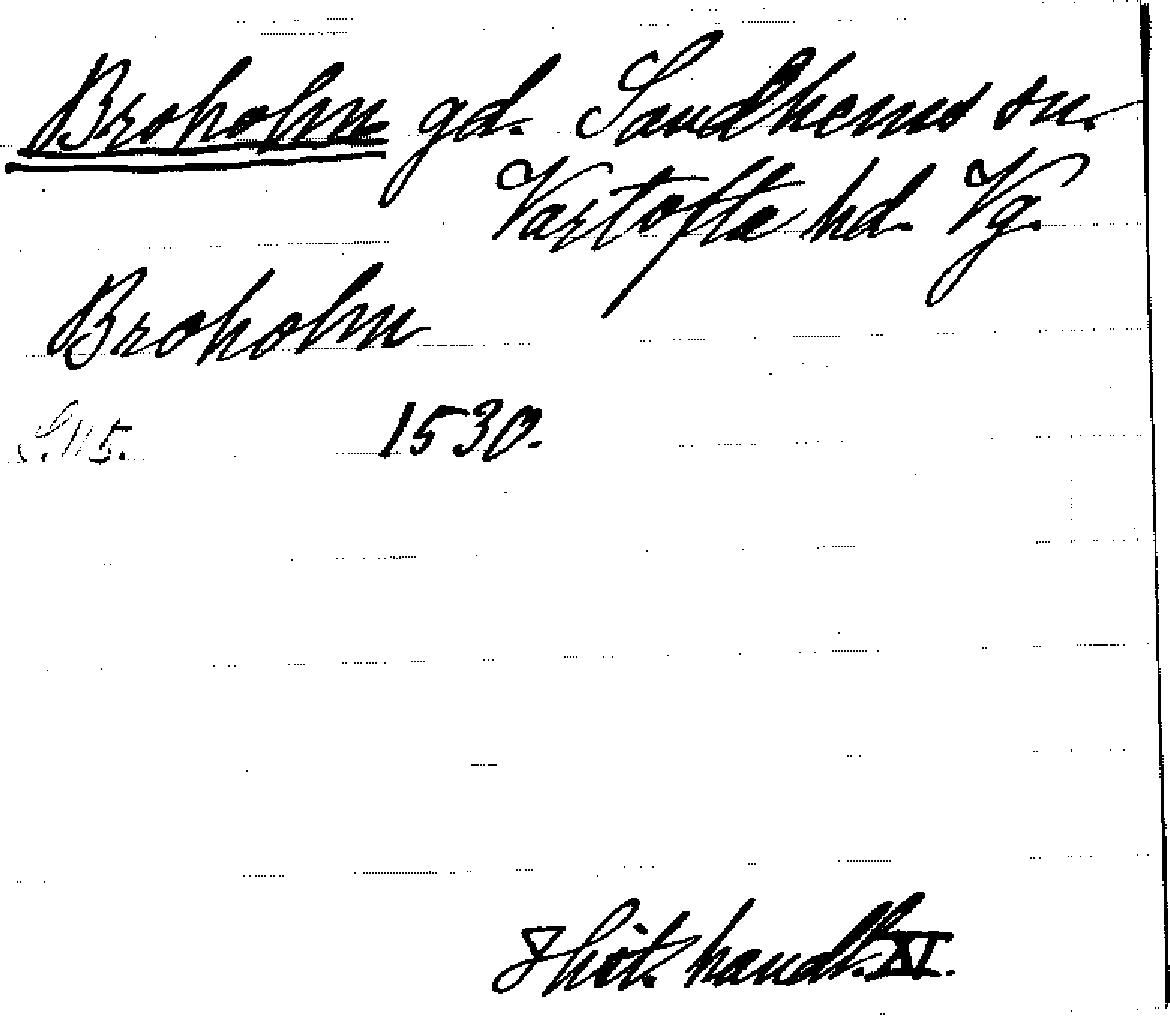 Broholm gd. Sandhems sn.
Vartofta hd. Vg.
Broholm
S. 115. 1530.
Hist. handl. XI.